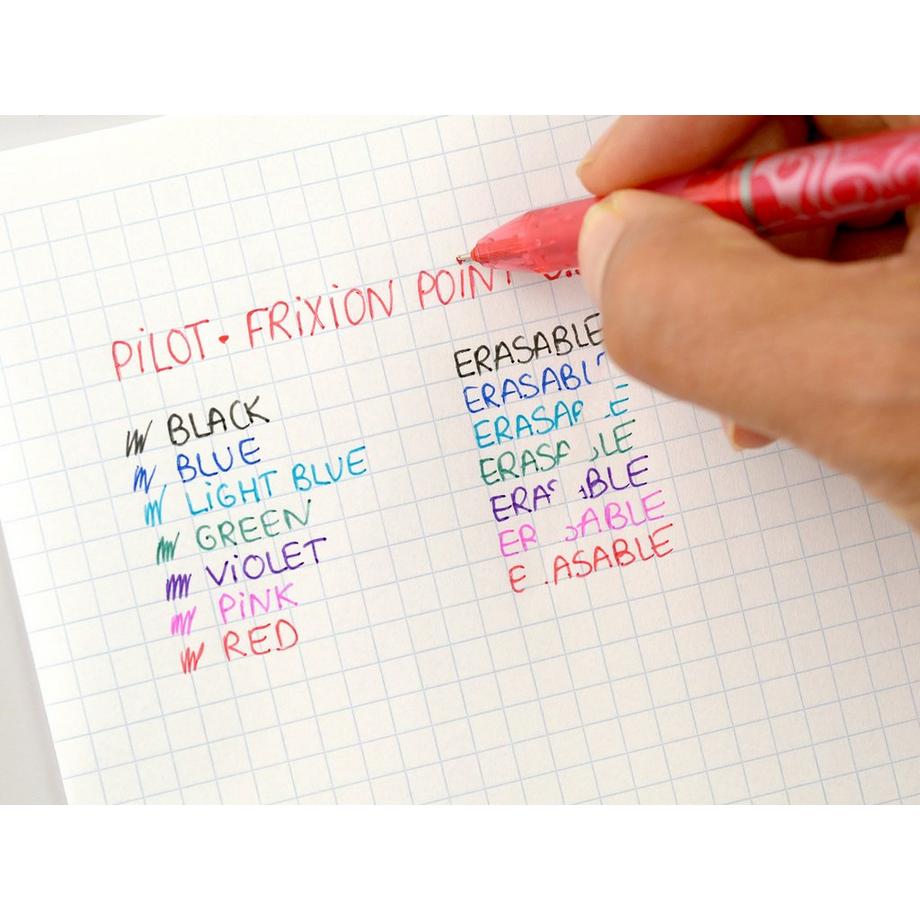 PiLOT • FRiXiON POINT
BLACK
BLUE
LiGHT BLUE
GREEN
ViOLET
PiNK
RED
ERASABLE
ERASABL
ERASA E
ERAS LE
ERA BLE
ER ABLE
E ASABLE